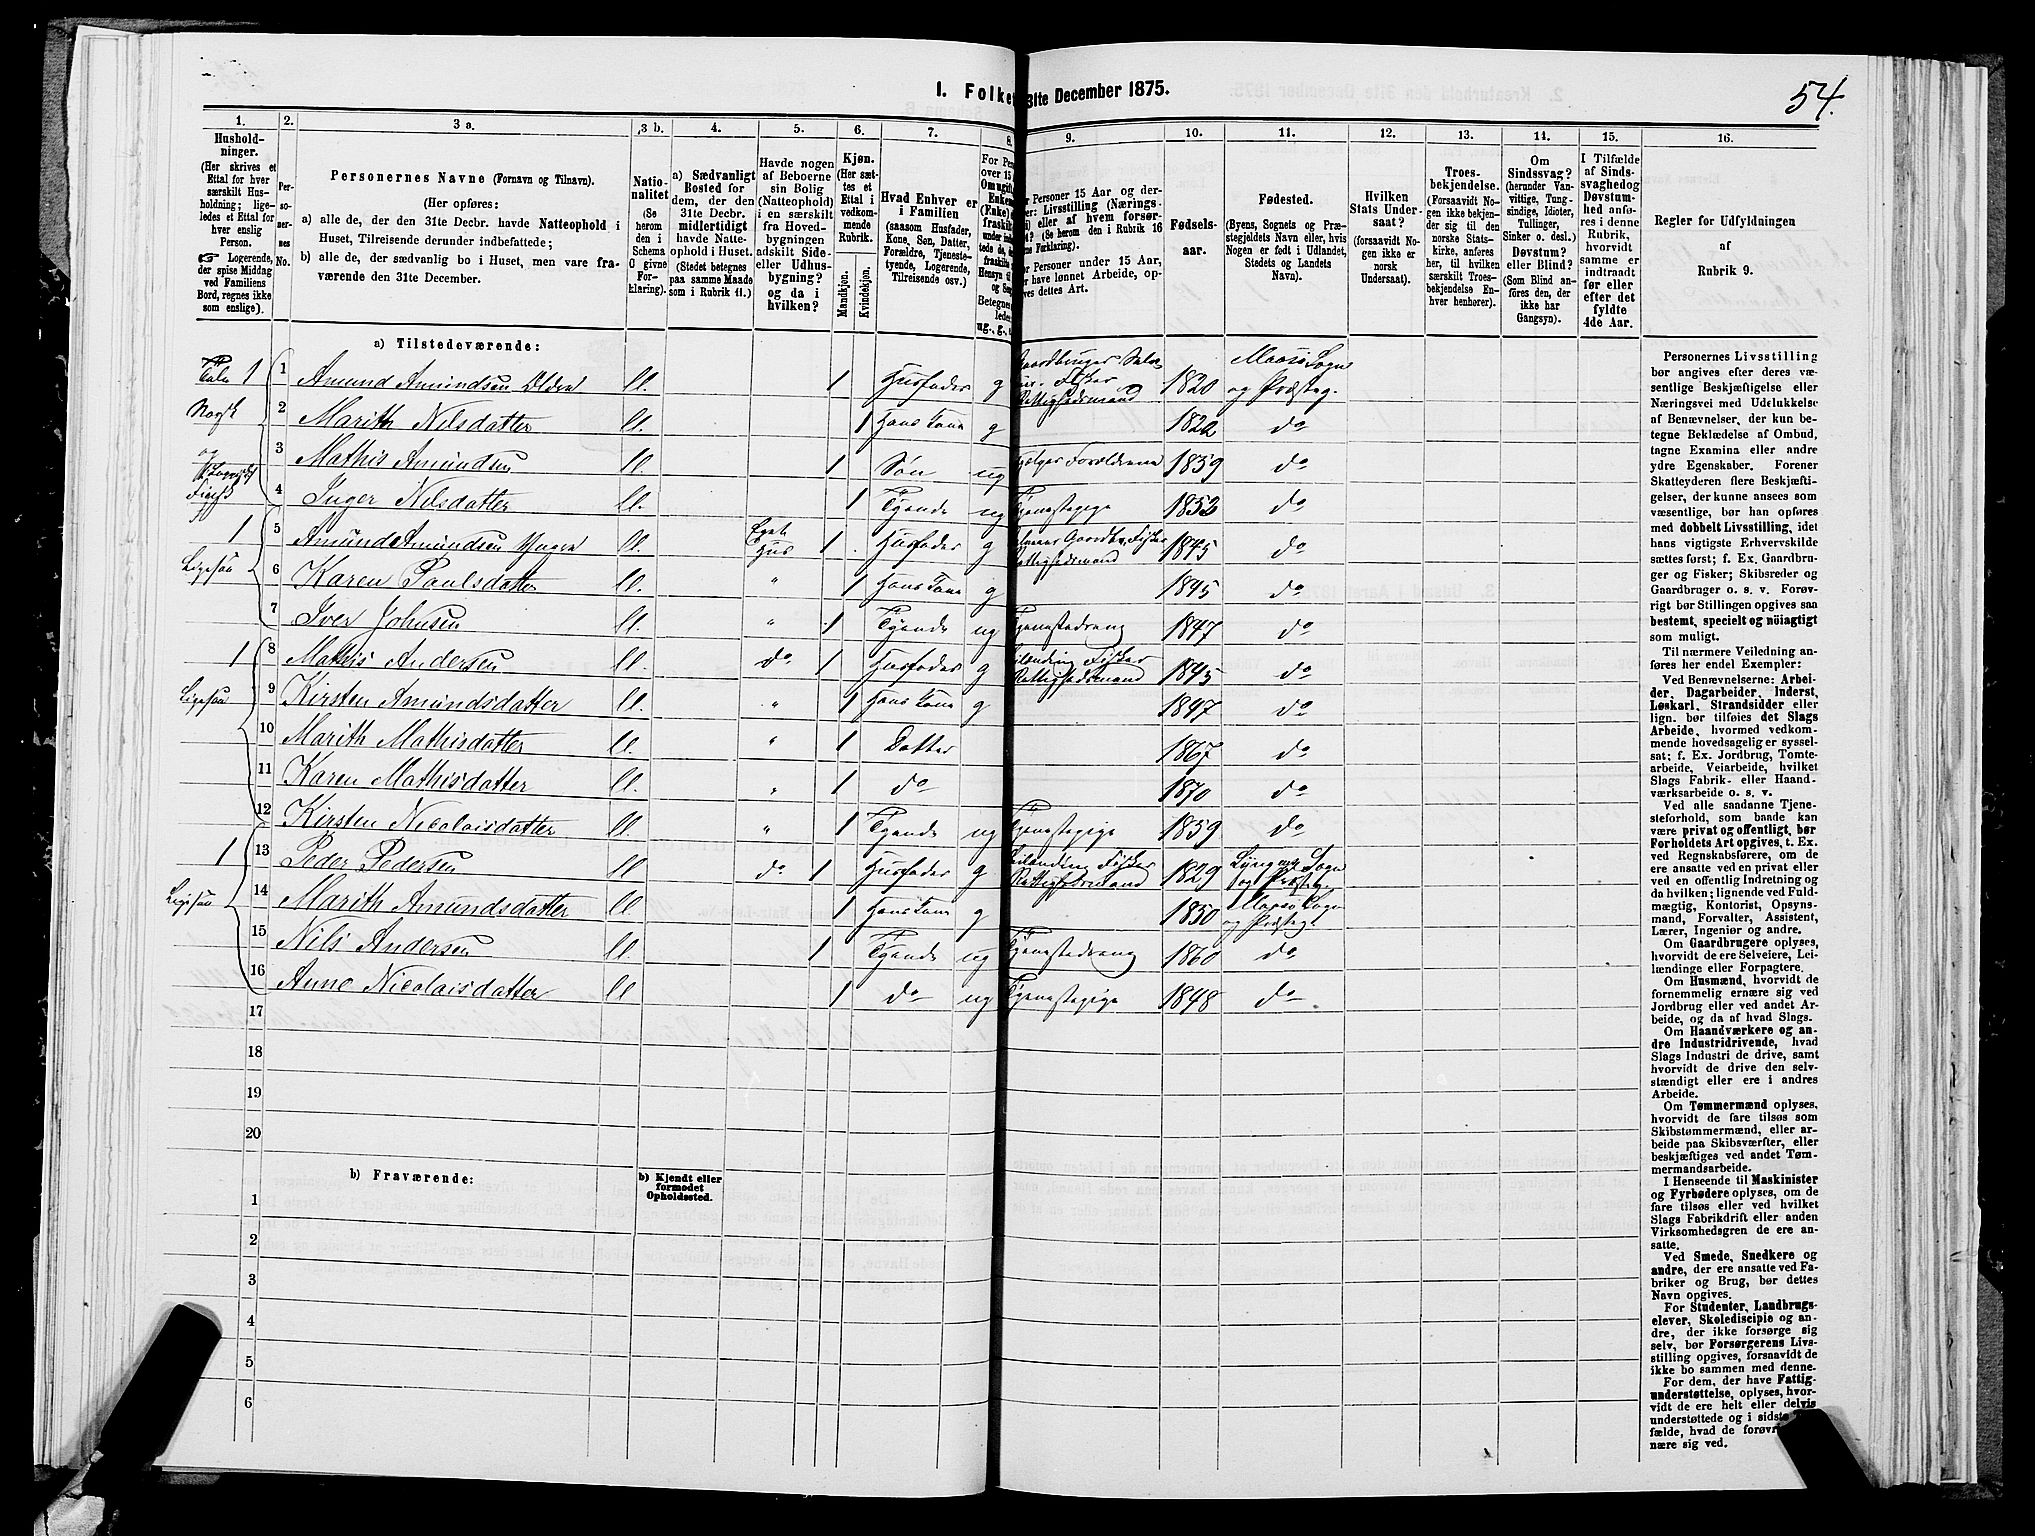 1. Folke
31te December 1875.
54.
1.
2.
3 a.
3 b.
4.
5.
6.
7.
8.
9.
10.
11.
12.
13.
14.
15.
16.
Hushold-
ninger.
(Her skrives et
Ettal for hver
særskilt Hus-
holdning; lige-
ledes et Ettal for
hver enslig
Person.
☞ Logerende,
der spise Middag
ved Familiens
Bord, regnes ikke
som enslige).
Per-
so-
ner-
nes
No.
Personernes Navne (Fornavn og Tilnavn).
(Her opføres:
a) alle de, der den 31te Decbr. havde Natteophold i
Huset, Tilreisende derunder indbefattede;
b) alle de, der sædvanlig bo i Huset, men vare fra-
værende den 31te December.
Natio-
nalitet
(Se
herom
den i
Schema
O givne
For-
klaring).
a) Sædvanligt
Bosted for
dem, der den
31te Decbr.
midlertidigt
havde Natte-
ophold i Huset.
(Stedet betegnes
paa samme Maade
som i Rubrik 11.)
Havde nogen
af Beboerne
sin Bolig
(Natteophold)
i en særskilt
fra Hoved-
bygningen
adskilt Side-
eller Udhus-
bygning?
og da i
hvilken?
Kjøn.
(Her sæt-
tes et
Ettal i
vedkom-
mende
Rubrik.
Mandkjøn.
Kvindekjøn.
Hvad Enhver er
i Familien
(saasom Husfader,
Kone, Søn, Datter,
Forældre, Tjeneste-
tyende, Logerende,
Tilreisende osv.)
For Per
over 15
Om ugift
Enken
(Enke)
fraskilt
Betegne
lede
ug., g.,
r Personer 15 Aar og der-
er: Livsstilling (Nærings-
ei) eller af hvem forsør-
t? (Se herom den i Rubrik 16
ne Forklaring).
or Personer under 15 Aar,
have lønnet Arbeide, op-
ves dettes Art.
Fødsels-
aar.
Fødested.
(Byens, Sognets og Præ-
stegjeldets Navn eller, hvis
Nogen er født i Udlandet,
Stedets og Landets
Navn).
Hvilken
Stats Under-
saat?
(forsaavidt No-
gen ikke er
norsk
Undersaat).
Troes-
bekjendelse.
(Forsaavidt No-
gen ikke bekjen-
der sig til den
norske Stats-
kirke, anføres
her, til hvilken
særskilt Troes-
bekjendelse En-
hver henhører).
Om
Sindssvag?
(herunder Van-
vittige, Tung-
sindige, Idioter,
Tullinger,
Sinker o. desl.)
Døvstum?
eller Blind?
(Som Blind an-
føres den, der
ikke har
Gangsyn).
I Tilfælde
af Sinds-
svaghed og
Døvstum-
hed anfø-
res i denne
Rubrik,
hvorvidt
samme er
indtraadt
før eller
efter det
fyldte
4de Aar.
Regler for Udfyldningen
af
Rubrik 9.
a) Tilstedeværende:
Tale 1 1 Amund Amundsen Olden ll. 1 Husfader g Gaardbruger Selv- Fisker Rettighedsmand 1820 Maasø Sogn og Præsteg.
Norsk 2 Marith Nilsdatter ll. 1 Hans Kone g 1822 do
og 3 Mathis Amundsen ll. 1 Søn ug hjælper Forældrene 1859 do
Finsk 4 Inger Nilsdatter ll. 1 Tyende ug Tjenestepige 1852 do
1 5 Amund Amundsen Yngre ll. Eget Hus 1 Husfader g Gaardb. Fisker Rettighedsmand 1845 do
Ligesaa 6 Karen Paulsdatter ll. " 1 Hans Kone g 1845 do
7 Iver Johnsen ll. " 1 Tyende ug Tjenestedreng 1847 do
1 8 Mathis Andersen ll. do 1 Husfader g Leilænding Fisker Rettighedsmand 1845 do
Ligesaa 9 Kirsten Amundsdatter ll. " 1 Hans Kone g 1847 do
10 Marith Mathisdatter ll. " 1 Datter 1867 do
11 Karen Mathisdatter ll. " 1 do 1870 do
12 Kirsten Nicolaisdatter ll. " 1 Tyende ug Tjenestepige 1859 do
1 13 Peder Pedersen ll do 1 Husfader g Leilænding Fisker Rettighedsmand 1829 Lyngens Sogn og Præsteg.
Ligesaa 14 Marith Amundsdatter ll. 1 Hans Kone g 1850 Maasø Sogn og Præsteg.
15 Nils Andersen ll. 1 Tyende ug Tjenestedreng 1860 do
16 Anne Nicolaisdatter ll 1 do ug Tjenestepige 1848 do
17
18
19
20
b) Fraværende:
b) Kjendt eller
formodet
Opholdssted.
1
2
3
4
5
6
Personernes Livsstilling
bør angives efter deres væ-
sentlige Beskjæftigelse eller
Næringsvei med Udelukkelse
af Benævnelser, der kun be-
tegne Beklædelse af Ombud,
tagne Examina eller andre
ydre Egenskaber. Forener
Skatteyderen flere Beskjæfti-
gelser, der kunne ansees som
væsentlige, bør han opføres
med dobbelt Livsstilling, idet
hans vigtigste Erhvervskilde
sættes først; f. Ex. Gaardbru-
ger og Fisker; Skibsreder og
Gaardbruger o. s. v. Forøv-
rigt bør Stillingen opgives saa
bestemt, specielt og nøiagtigt
som muligt.
Til nærmere Veiledning an-
føres her endel Exempler:
Ved Benævnelserne: Arbei-
der, Dagarbeider, Inderst,
Løskarl, Strandsidder eller
lign. bør tilføies det Slags
Arbeide, hvormed vedkom-
mende hovedsagelig er syssel-
sat; f. Ex. Jordbrug, Tomte-
arbeide, Veiarbeide, hvilket
Slags Fabrik- eller Haand-
værksarbeide o. s. v.
Ved alle saadanne Tjene-
steforhold, som baade kan
være privat og offentligt, bør
Forholdets Art opgives, t. Ex.
ved Regnskabsførere, om de
ere ansatte ved en privat eller
ved en offentlig Indretning og
da hvilken; lignende ved Fuld-
mægtig, Kontorist, Opsyns-
mand, Forvalter, Assistent,
Lærer, Ingeniør og andre.
Om Gaardbrugere oplyses,
hvorvidt de ere Selveiere, Lei-
lændinge eller Forpagtere.
Om Husmænd, hvorvidt de
fornemmelig ernære sig ved
Jordbrug eller ved andet Ar-
beide, og da af hvad Slags.
Om Haandværkere og an-
dre Industridrivende, hvad
Slags Industri de drive, samt
hvorvidt de drive den selv-
stændigt eller ere i andres
Arbeide.
Om Tømmermænd oplyses,
hvorvidt de fare tilsøs som
Skibstømmermænd, eller ar-
beide paa Skibsværfter, eller
beskjæftiges ved andet Tøm-
mermandsarbeide.
I Henseende til Maskinister
og Fyrbødere oplyses, om de
fare tilsøs eller ved hvilket
Slags Fabrikdrift eller anden
Virksomhedsgren de ere an-
satte.
Ved Smede, Snedkere og
andre, der ere ansatte ved Fa-
briker og Brug, bør dettes
Navn opgives.
For Studenter, Landbrugs-
elever, Skoledisciple og an-
dre, der ikke forsørge sig
selv, bør Forsørgerens Livs-
stilling opgives, forsaavidt de
ikke bo sammen med denne.
For dem, der have Fattig-
understøttelse, oplyses, hvor-
vidt de ere helt eller delvis
understøttede og i sidste
fælde, hvad de forøvr
nære sig ved.